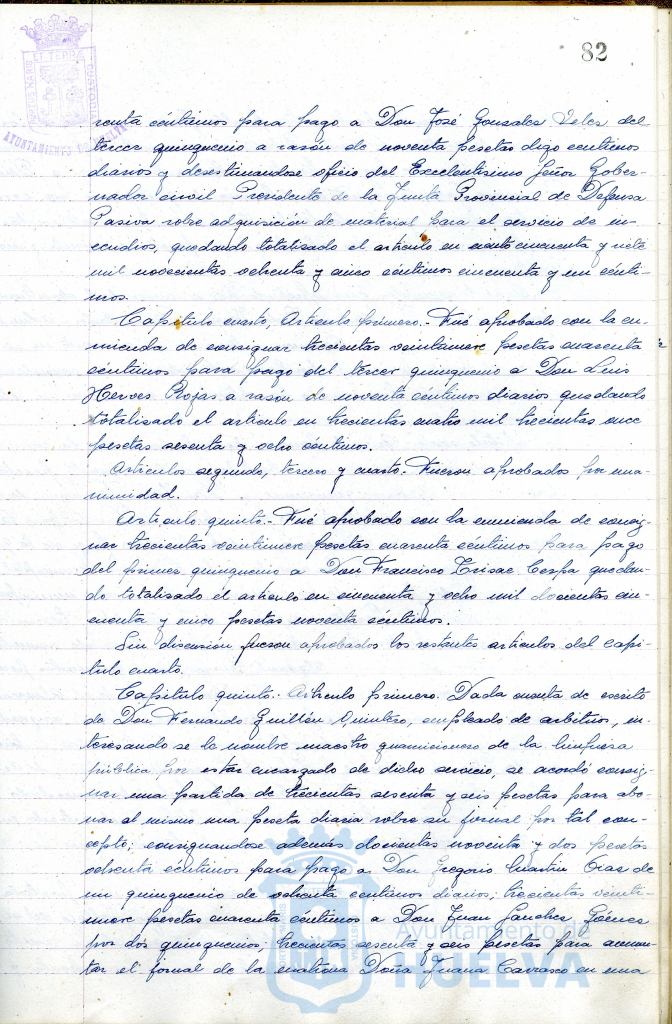 82
PORTUS MARIS ET TERRÆ CUSTODIA
AYUNTAMIENTO DE HUELVA
renta céntimos para pago a Don José Gonzales Veles del
tercer quinquenio a razón de noventa pesetas digo centimos
diarios y desestimandose oficio del Excelentisimo Señor Gober-
nador civil Presidente de la Junta Provincial de Defensa
Pasiva sobre adquisición de material para el servicio de in-
cendios, quedando totalizado el articulo en ciento cincuenta y siete
mil novecientas ochenta y cinco céntimos cincuenta y un cénti-
mos.
Capitulo cuarto, Articulo primero.- Fué aprobado con la en-
mienda de consignar trecientas veintinueve pesetas cuarenta
céntimos para pago del tercer quinquenio a Don Luis
Herves Rojas a razón de noventa céntimos diarios quedando
totalizado el articulo en trecientas cuatro mil trecientas once
pesetas sesenta y ocho céntimos.
Articulos segundo, tercero y cuarto.- Fueron aprobados por una-
nimidad.
Articulo quinto.- Fué aprobado con la enmienda de consig-
nar trecientas veintinueve pesetas cuarenta céntimos para pago
del primer quinquenio a Don Francisco Cerpa quedan-
do totalizado el articulo en cincuenta y ocho mil docientas cin-
cuenta y cinco pesetas noventa céntimos.
Sin discusión fueron aprobados los restantes articulos del capi-
tulo cuarto.
Capitulo quinto.- Articulo primero. Dada cuenta de escrito
de Don Fernando Guillén Quintero, empleado de arbitrios, in-
teresando se le nombre maestro guarnicionero de la limpieza
pública por estar encargado de dicho servicio, se acordó consig-
nar una partida de trecientas sesenta y seis pesetas para abo-
nar al mismo una peseta diaria sobre su jornal por tal con-
cepto; consignandose además docientas noventa y dos pesetas
ochenta céntimos para pago a Don Gregorio Martin Dias de
un quinquenio de ochenta centimos diarios; trecientas veinti-
nueve pesetas cuarenta céntimos a Don Juan Sanches Gómes
por dos quinquenios; trecientas sesenta y seis pesetas para aumen-
tar el jornal de la matrona Doña Juana Carrasco en una
Ayuntamiento de
HUELVA